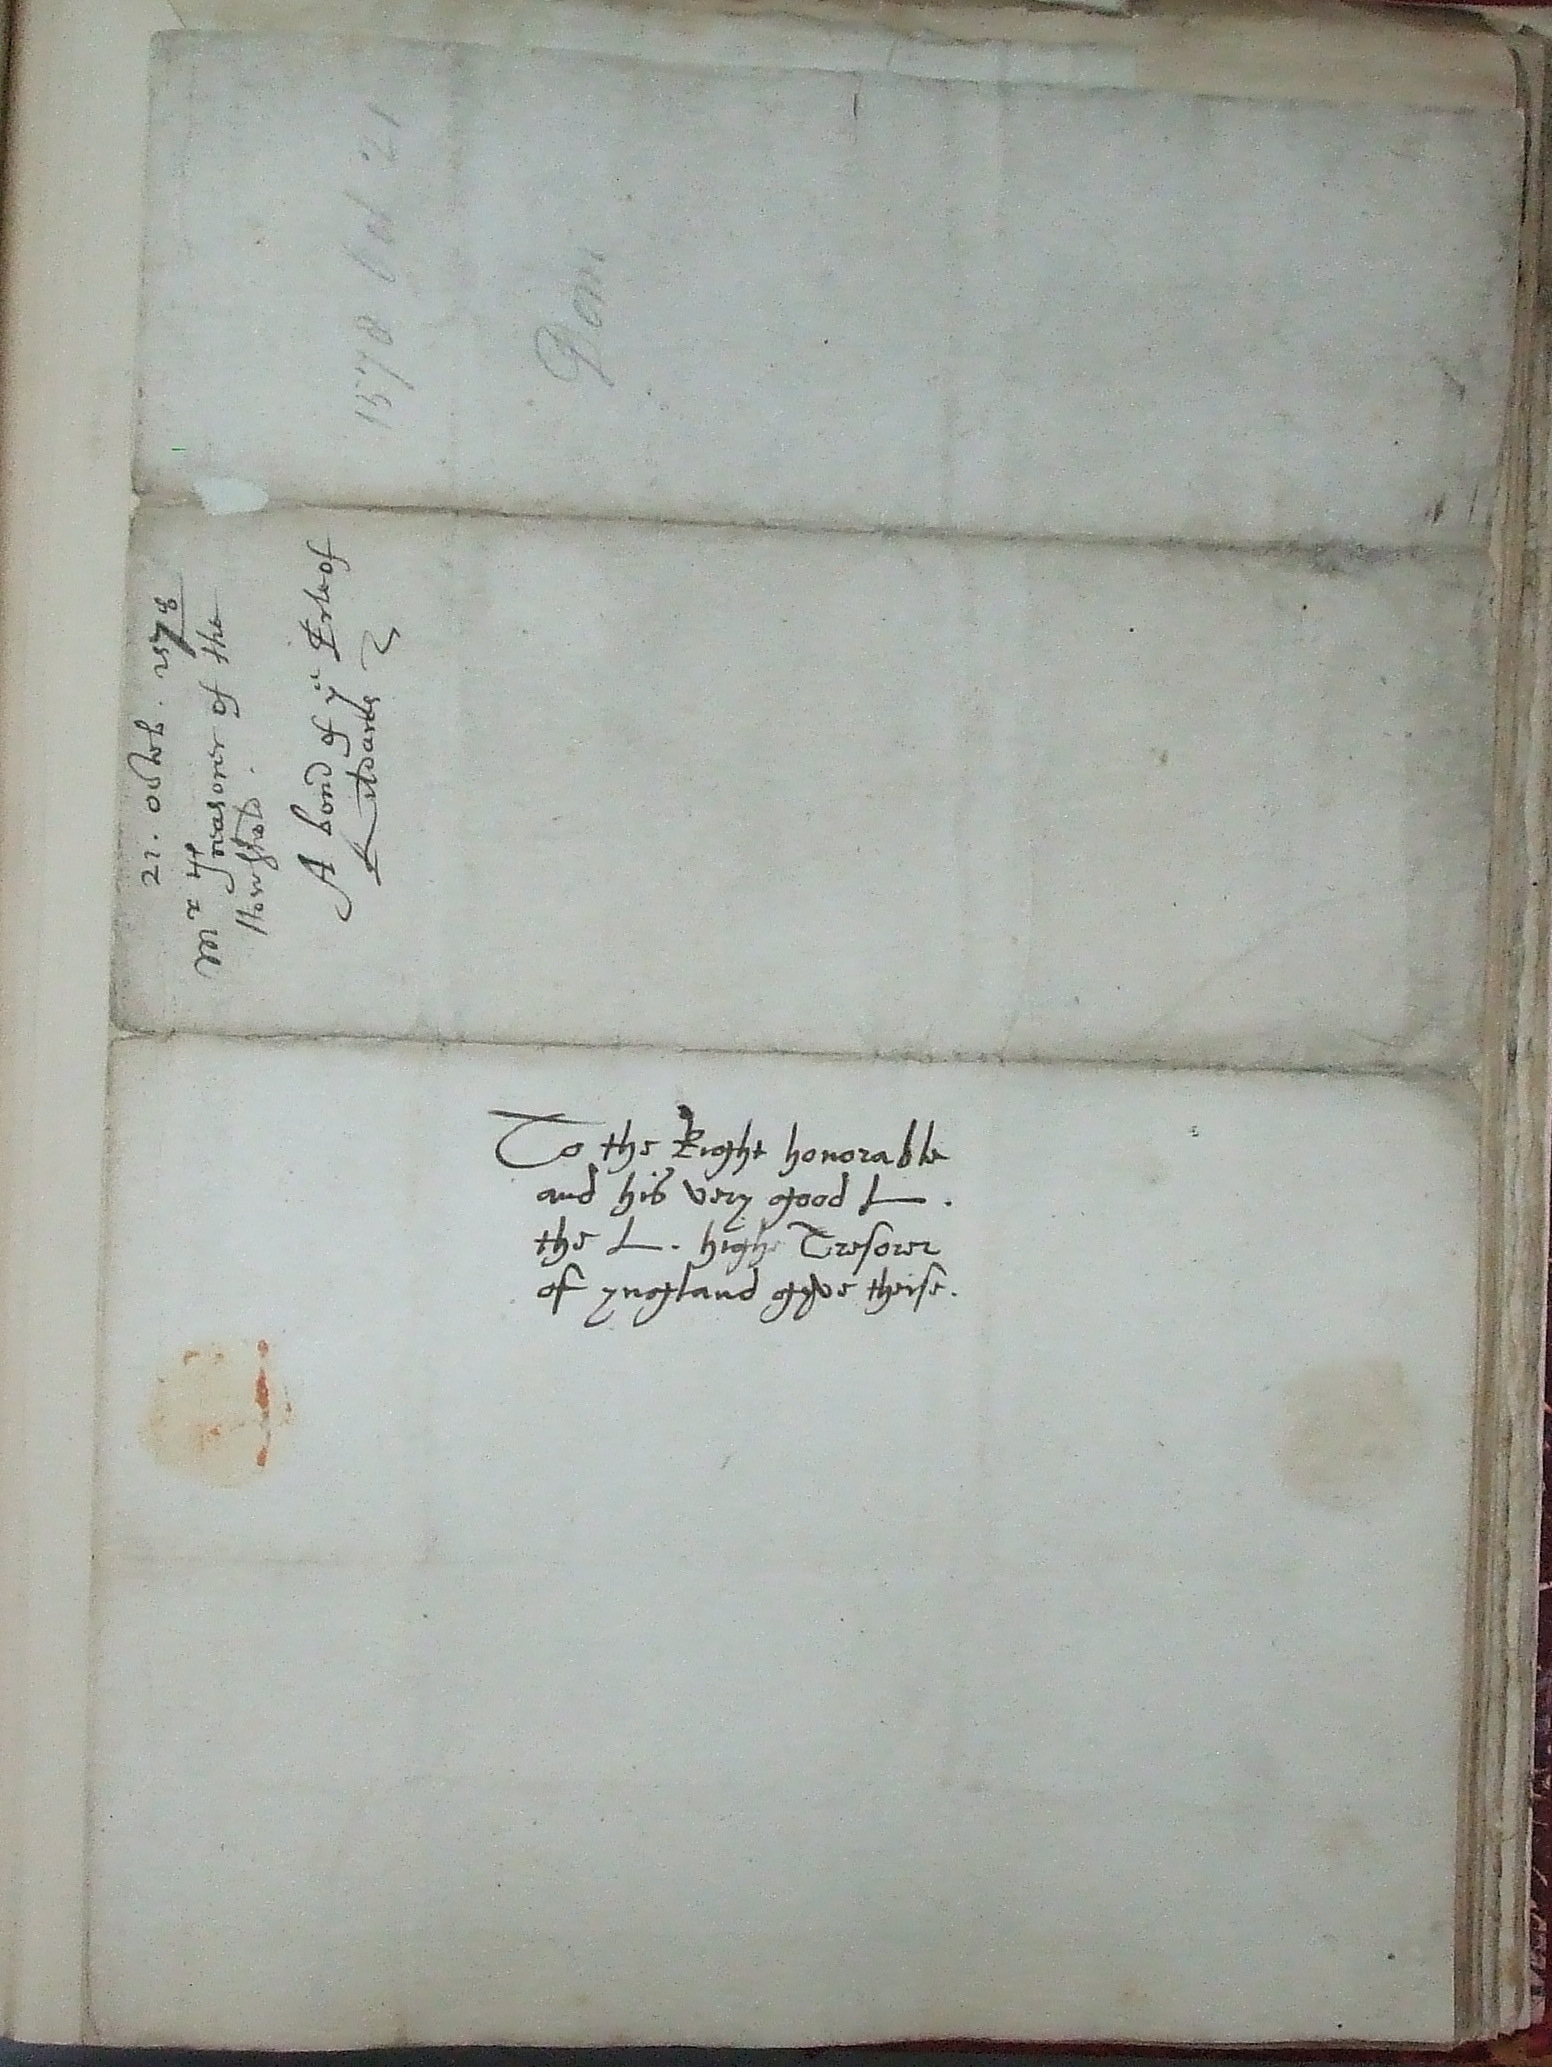 To the Right honorable
and his very good L.
the L. highe Tresorer
of yngland gyve theise.
21. Octob. 1578
Mr Thresorer of the
Howshold.
A bond of ye Erle of
1578 Oct 21
Dom